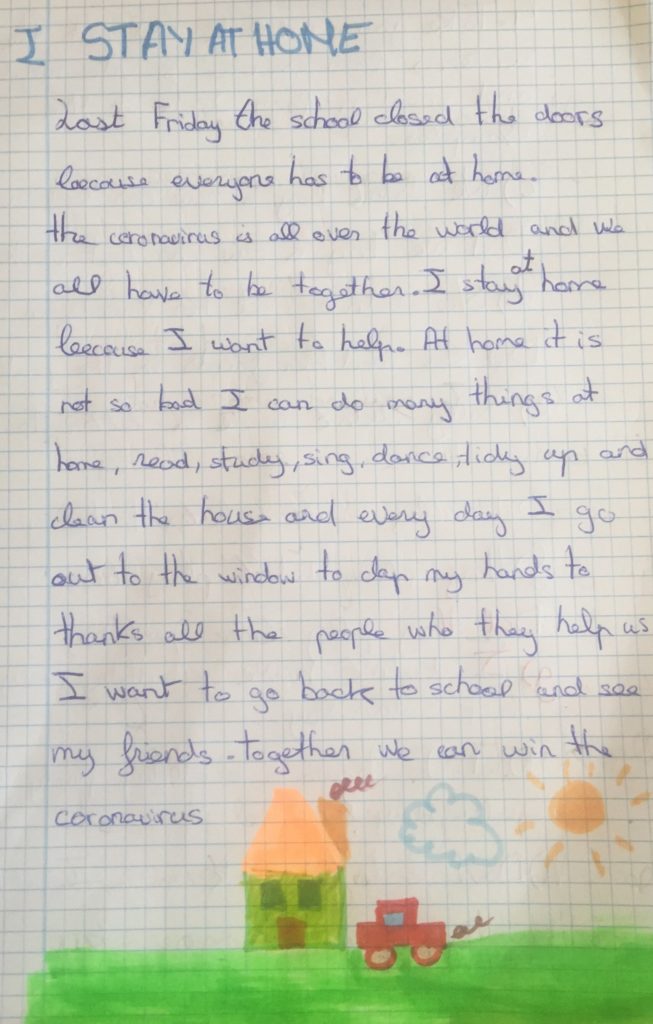 I STAY AT HOME
Last Friday the school closed the doors
because everyone has to be at home.
the coronavirus is all over the world and we
all have to be together. I stay at home
because I want to help. At home it is
not so bad I can do many things at
home, read, study, sing, dance, tidy up and
clean the house and every day I go
out to the window to clap my hands to
thanks all the people who they help us
I want to go back to school and see
my friends. together we can win the
coronavirus